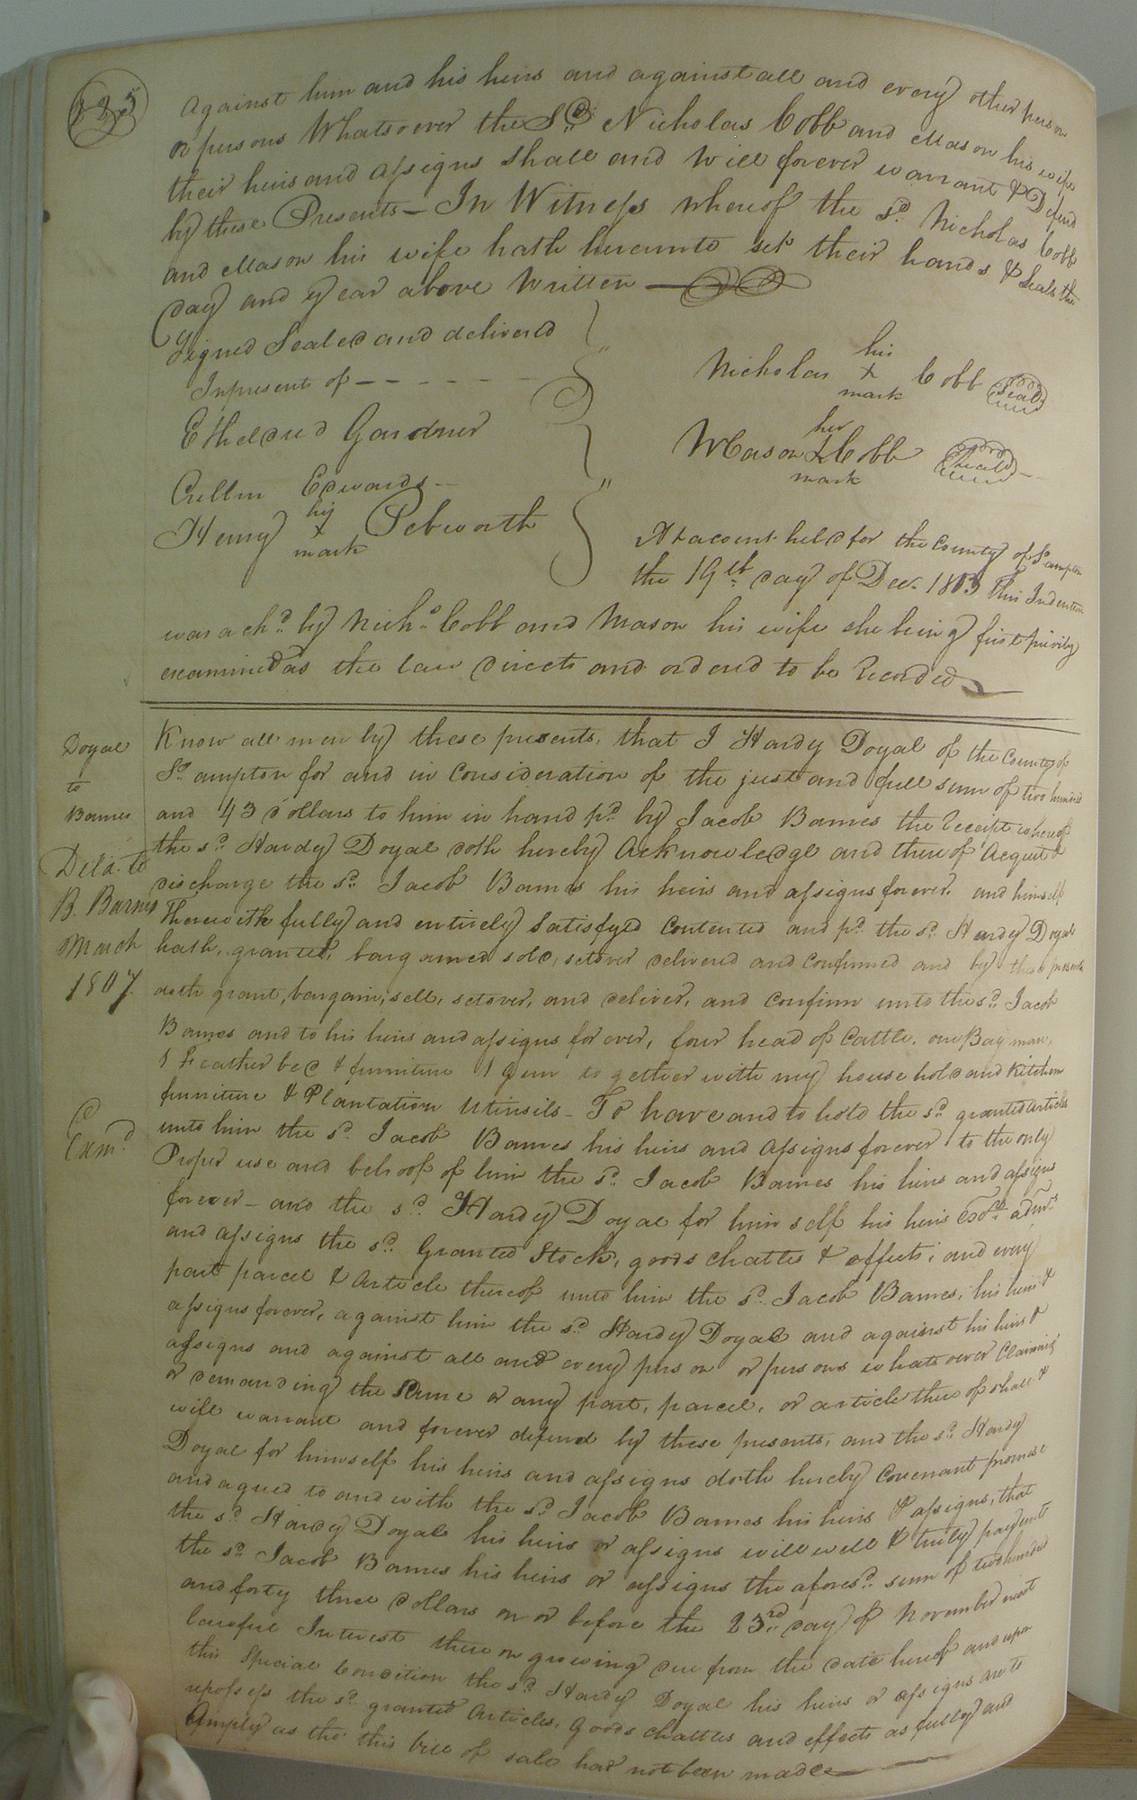 against him and his heirs and against all and every other person
or persons Whatsoever the Sd. Nicholas Cobb and Mason his wife
their heirs and assigns shall and will forever warrant & Defend
by these Presents – In Witness whereof the sd. Nicholas Cobb
and Mason his wife hath hereunto set their hands & seals the
day and year above Written
Signed Sealed and delivered
In present of
Etheldred Gardner
Cullin Edwards
Henry his x mark Pebworth
Nicholas his x mark Cobb Seal
Mason her x mark Cobb Seal
At a court held for the County of So.ampton
the 19th day of Dec. 1803 This Indenture
was ackd. by Nicho. Cobb and Mason his wife she being first privily
examined as the law directs and ordered to be Recorded
Doyal
to
Barnes
Deld. to
B. Barnes
March
1807.
Exmd.
Know all men by these presents, that I Hardy Doyal of the County of
So.ampton for and in Consideration of the just and full sum of two hundred
and 43 dollars to him in hand pd. by Jacob Barnes the Receipt whereof
the sd. Hardy Doyal doth hereby Acknowledge and thereof Acquit &
discharge the sd. Jacob Barnes his heirs and assigns forever. and himself
Therewith fully and entirely Satisfyed Contented and pd. the sd. Hardy Doyal
hath, granted, bargained sold, setover delivered and Confirmed and by these presents
doth grant, bargain, sell, setover, and deliver, and Confirm unto the sd. Jacob
Barnes and to his heirs and assigns for ever, four head of Cattle, one Bay mare,
1 Feather bed & furniture 1 Gun together with my house hold and Kitchen
furniture & Plantation Utinsils – To have and to hold the sd. granted articles
unto him the sd. Jacob Barnes his heirs and assigns forever to the only
Proper use and behoof of him the sd. Jacob Barnes his heirs and assigns
forever – and the sd. Hardy Doyal for him self his heirs Exors. admrs.
and assigns the sd. Granted Stock, goods chattes & effects, and every
part parcel & Article thereof unto him the sd. Jacob Barnes, his heirs &
assigns forever, against him the sd Hardy Doyal and against his heirs &
assigns and against all and every person or persons whatsoever Claiming
or demanding the same or any part, parcel, or article thereof shall &
will warrant and forever defend by these presents, and the sd. Hardy
Doyal for himself his heirs and assigns doth hereby Covenant promise
and agreed to and with the sd. Jacob Barnes his heirs & assigns, that
the sd. Hardy Doyal his heirs or assigns will well & truly pay unto
the sd. Jacob Barnes his heirs or assigns the aforesd. sum of two hundred
and forty three dollars on or before the 23rd day of November next
lawful Interest there on growing due from the date hereof and upon
this Special Condition the sd. Hardy Doyal his heirs or assigns are to
repossess the sd. granted Articles, Goods chattles and effects as fully and
Amply as tho this bill of sale had not been made